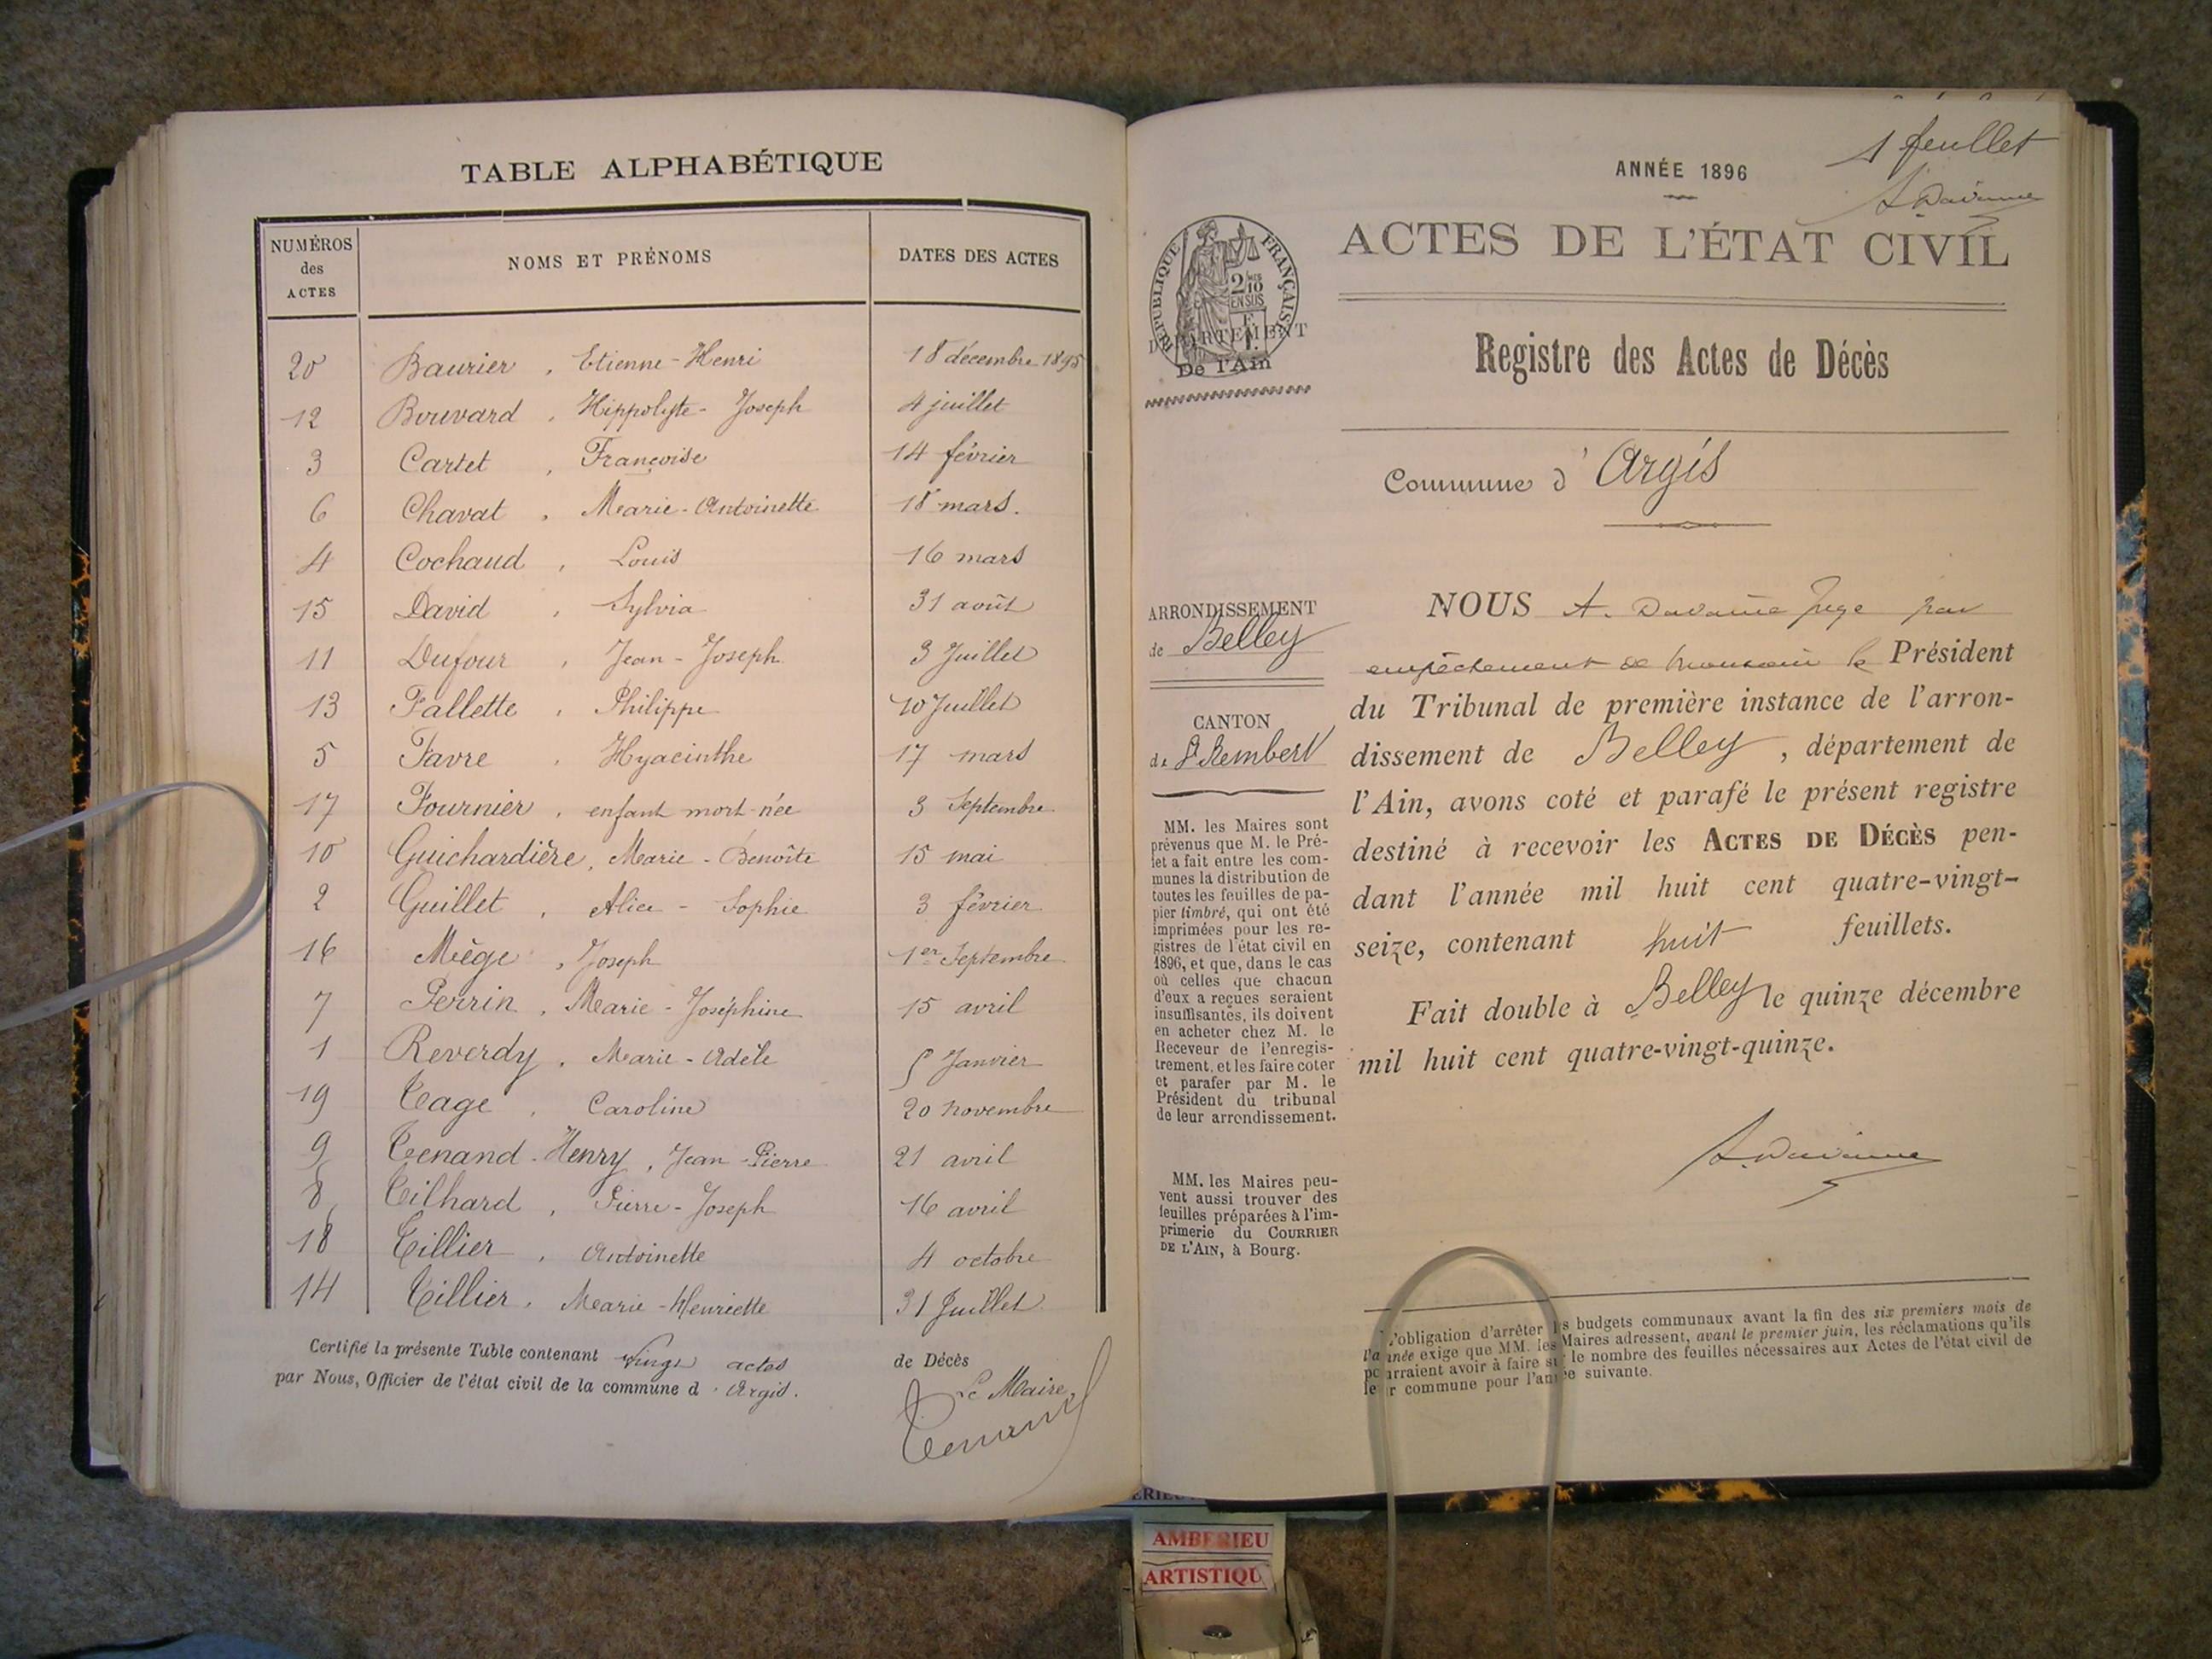 TABLE ALPHABÉTIQUE
NUMÉROS des ACTES NOMS ET PRÉNOMS DATES DES ACTES
20 Baurier, Etienne-Henri 18 décembre 1895
12 Bouvard, Hippolyte-Joseph 4 juillet
3 Cartet, Françoise 14 février
6 Chavat, Marie-Antoinette 18 mars.
4 Cochaud, Louis 16 mars
15 David, Sylvia 31 août
11 Dufour, Jean-Joseph 3 Juillet
13 Fallette, Philippe 10 Juillet
5 Favre, Hyacinthe 17 mars
17 Fournier, enfant mort-née 3 Septembre
10 Guichardière, Marie-Benoîte 15 mai
2 Guillet, Alice-Sophie 3 février
16 Miège, Joseph 1er Septembre
7 Perrin, Marie-Joséphine 15 avril
1 Reverdy, Marie-Adèle 5 Janvier
19 Tage, Caroline 20 novembre
9 Tenand-Henry, Jean-Pierre 21 avril
8 Tilhard, Pierre-Joseph 16 avril
18 Tillier, Antoinette 4 octobre
14 Tillier, Marie-Henriette 31 Juillet
Certifié la présente Table contenant vingt actes de Décès
par Nous, Officier de l'état civil de la commune d'Argis.
Le Maire
Tenand
1 feuillet
A. Davaine
ANNÉE 1896
ACTES DE L'ÉTAT CIVIL
RÉPUBLIQUE FRANÇAISE
2/10 EN SUS
DÉPARTEMENT
De l'Ain
Registre des Actes de Décès
Commune d'Argis
ARRONDISSEMENT
de Belley
CANTON
de St Rembert
MM. les Maires sont
prévenus que M. le Pré-
fet a fait entre les com-
munes la distribution de
toutes les feuilles de pa-
pier timbré, qui ont été
imprimées pour les re-
gistres de l'état civil en
1896, et que, dans le cas
où celles que chacun
d'eux a reçues seraient
insuffisantes, ils doivent
en acheter chez M. le
Receveur de l'enregis-
trement, et les faire coter
et parafer par M. le
Président du tribunal
de leur arrondissement.
MM. les Maires peu-
vent aussi trouver des
feuilles préparées à l'im-
primerie du COURRIER
DE L'AIN, à Bourg.
NOUS A. Davaine Juge par
empêchement de Monsieur le Président
du Tribunal de première instance de l'arron-
dissement de Belley, département de
l'Ain, avons coté et parafé le présent registre
destiné à recevoir les ACTES DE DÉCÈS pen-
dant l'année mil huit cent quatre-vingt-
seize, contenant huit feuillets.
Fait double à Belley le quinze décembre
mil huit cent quatre-vingt-quinze.
A. Davaine
L'obligation d'arrêter les budgets communaux avant la fin des six premiers mois de
l'année exige que MM. les Maires adressent, avant le premier juin, les réclamations qu'ils
pourraient avoir à faire sur le nombre des feuilles nécessaires aux Actes de l'état civil de
leur commune pour l'année suivante.
AMBERIEU
ARTISTIQU